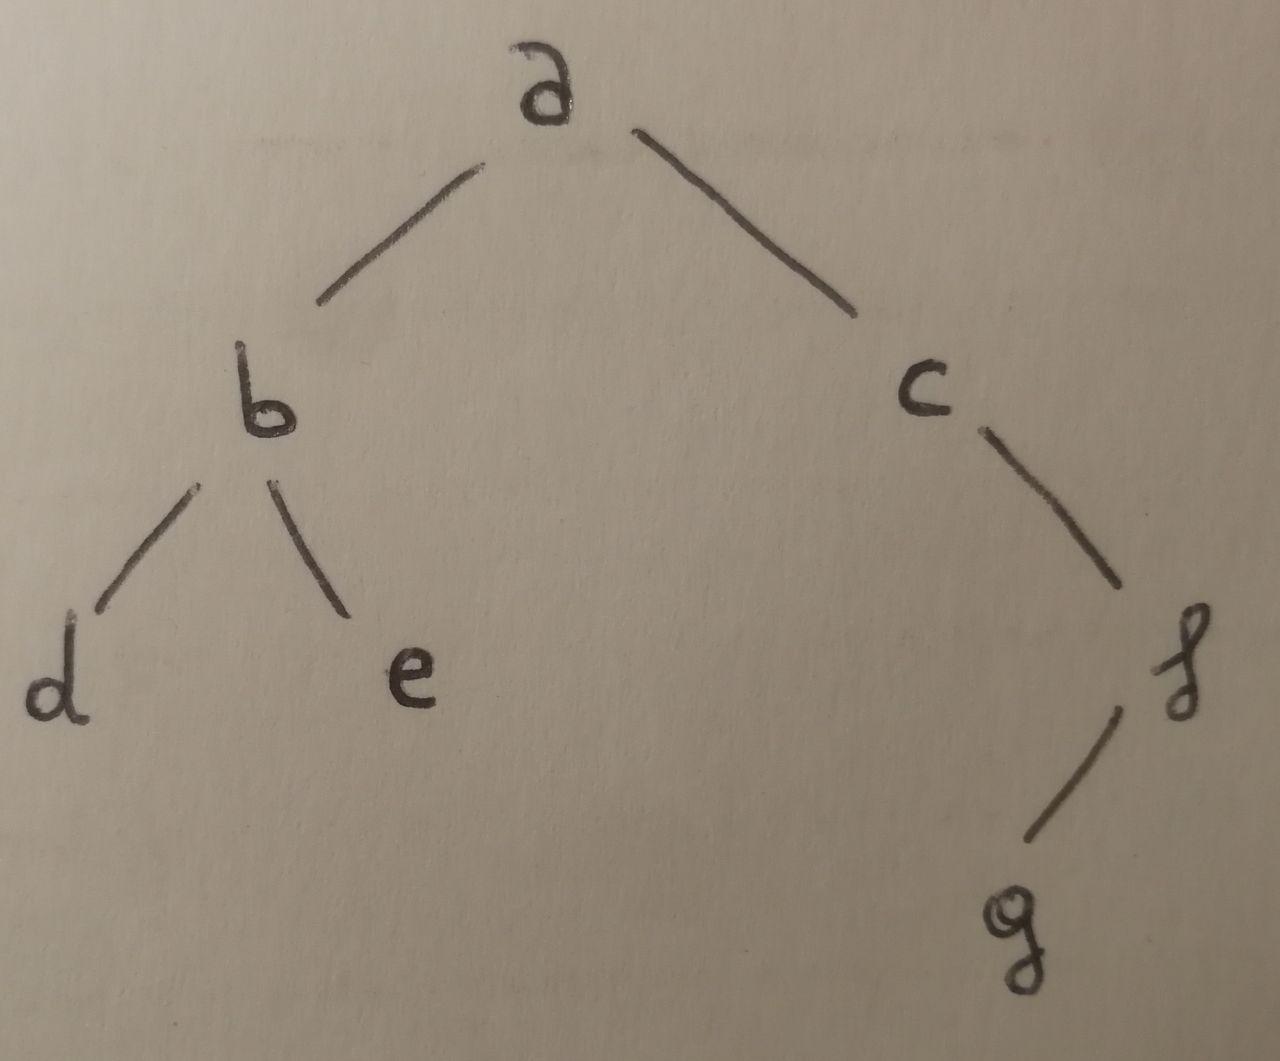 a
b c
d e f
g